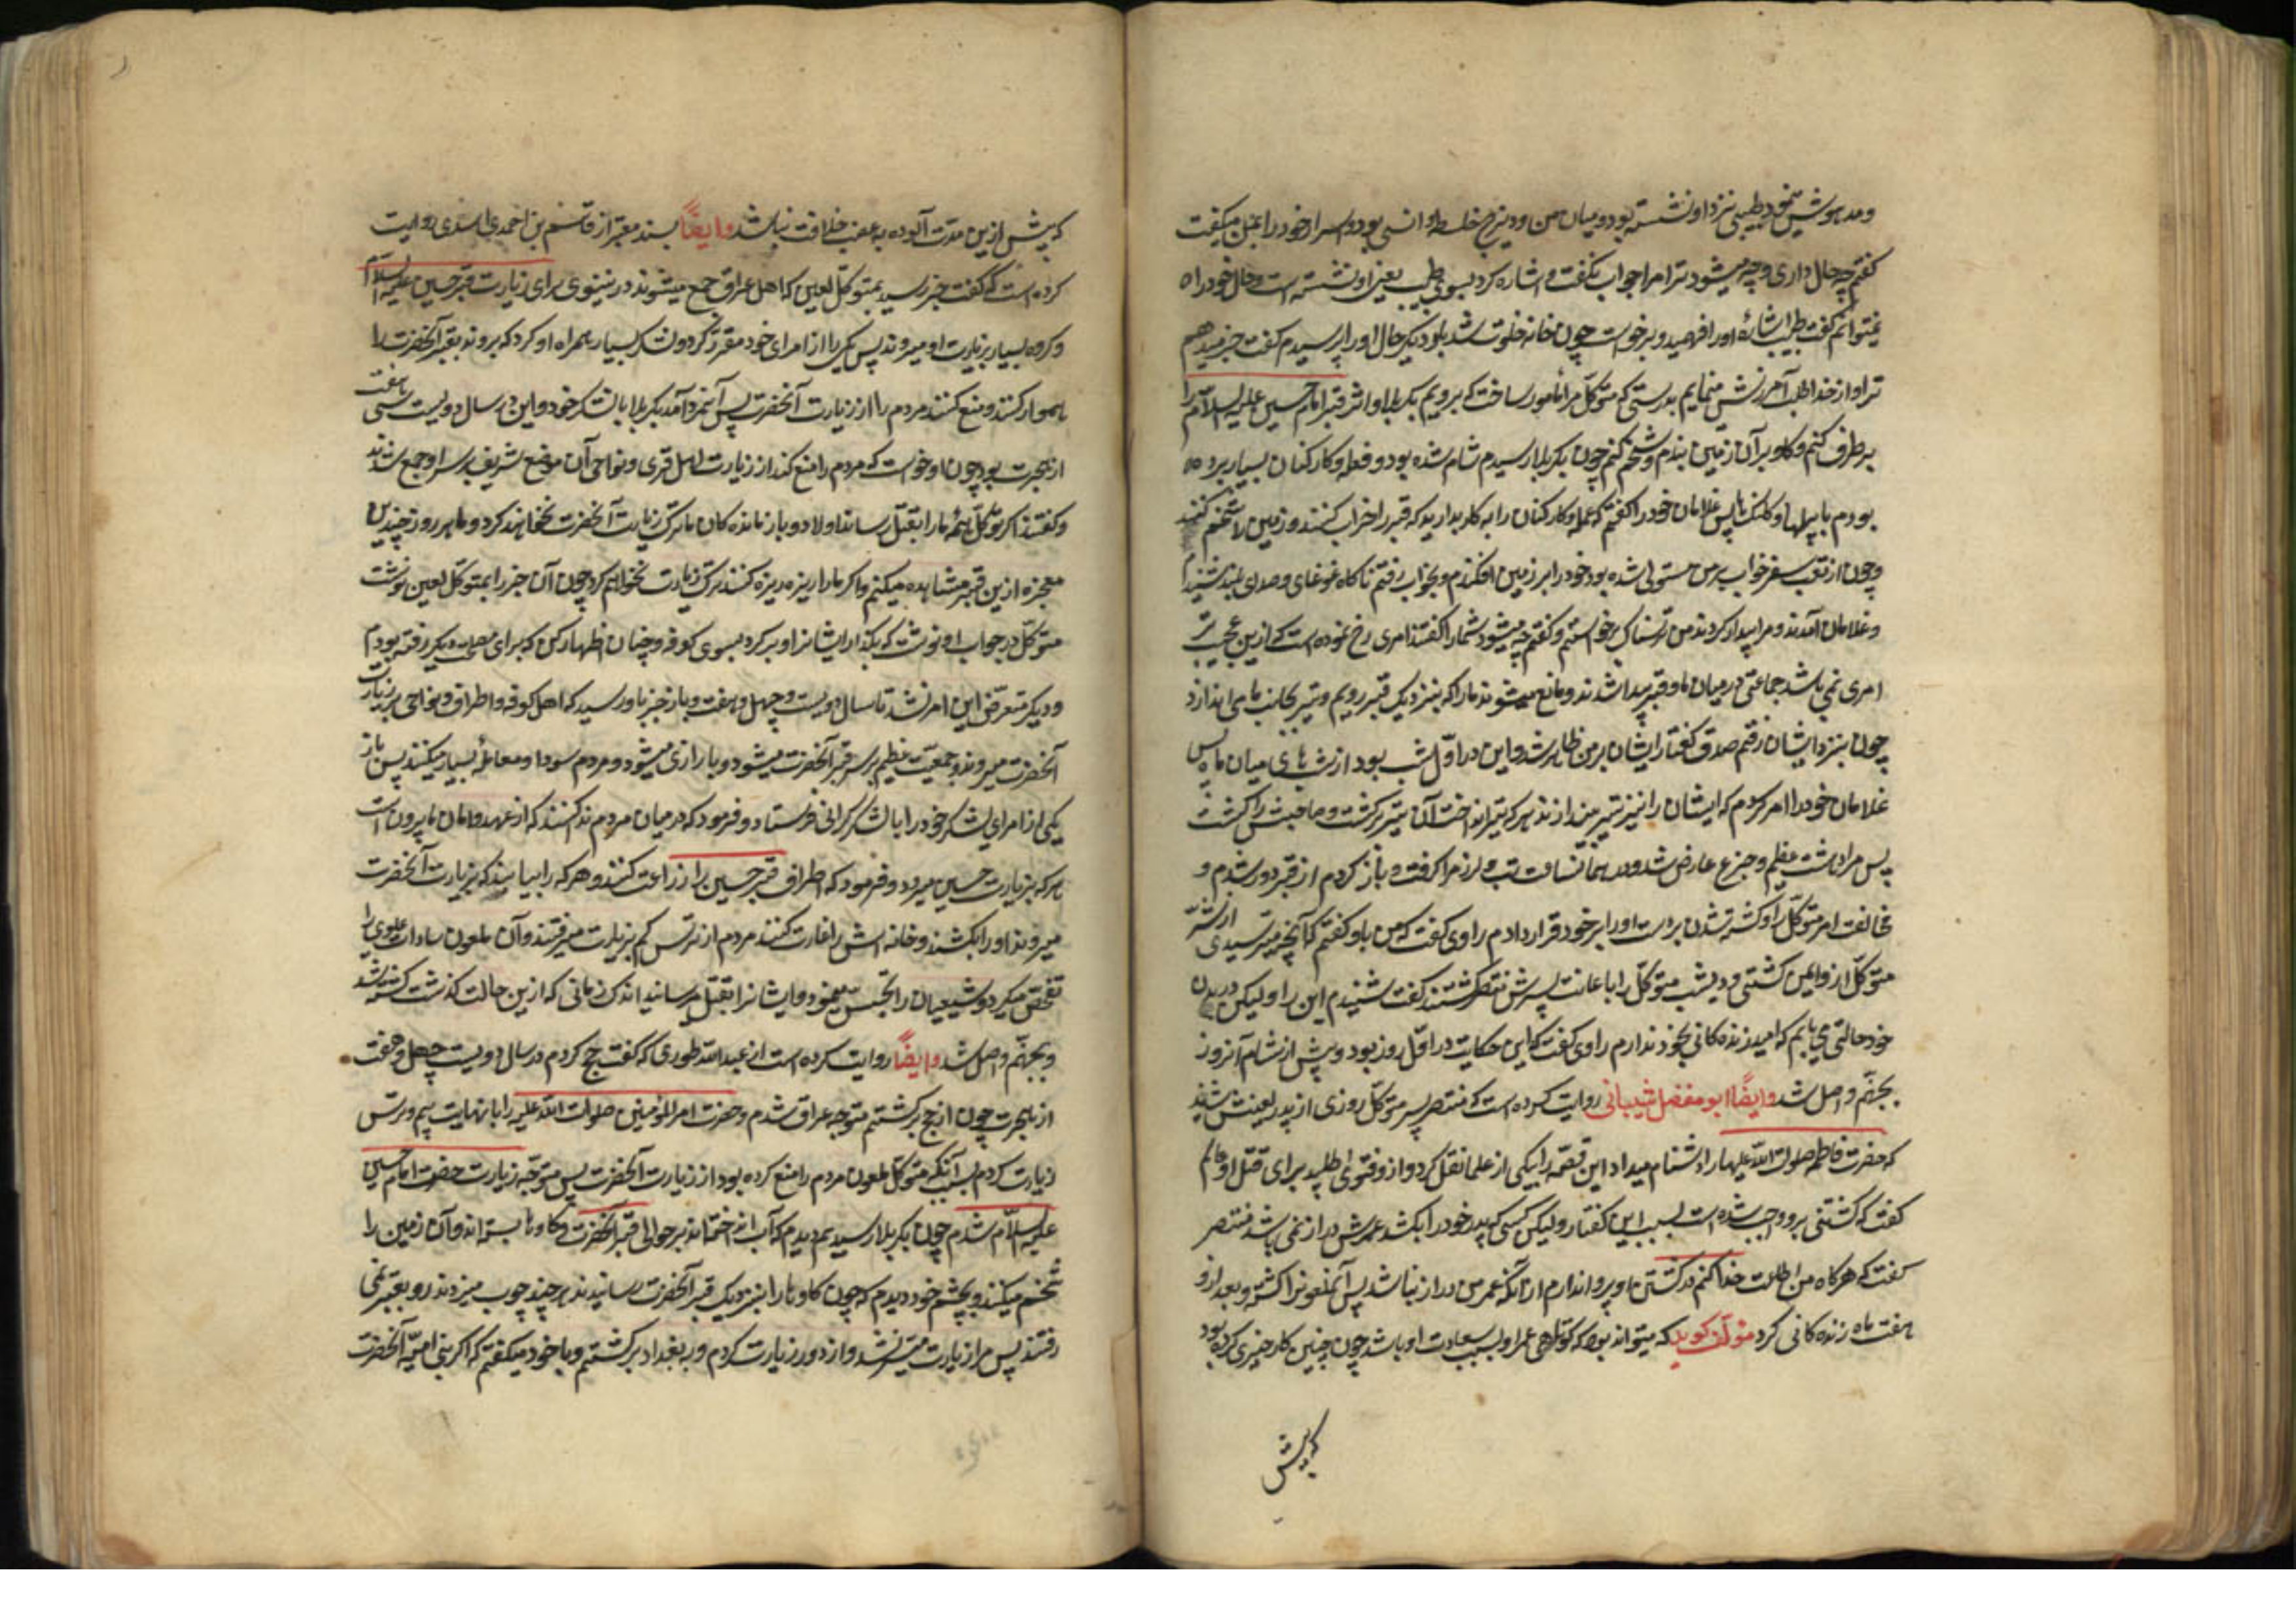 و مدهوش نمود طبیبی نزد او نشسته بود و میان من و دیزج خلطه و انسی بود و اسرار خود را بمن میگفت
گفتم چه حال داری و چه میشود ترا مرا جواب نگفت و اشاره کرد بسوی طبیب یعنی او نشسته است و حال خود را
نمیتوانم گفت طبیب اشارهٔ او را فهمید و برخواست چون خانه خلوت شد بار دیگر حال او را پرسیدم گفت خبر میدهم
ترا و از خدا طلب آمرزش مینمایم بدرستی که متوکل مرا مأمور ساخت که برویم بکربلا و اثر قبر امام حسین علیه السلام را
برطرف کنم و گاو بر آن زمین بندم و شخم کنم چون بکربلا رسیدم شام شده بود و فعله و کارکنان بسیار برده
بودم با بیلها و کلنک ها پس غلامان خود را گفتم که عمله و کارکنان را به کار بدارید که قبر را خراب کنند و زمین را شخم کنند
و چون از تعب سفر خواب بر من مستولی شده بود خود را بر زمین افکندم و بخواب رفتم ناکاه غوغای و صدای بلند شنیدم
و غلامان آمدند و مرا بیدار کردند من ترسناک برخواستم و گفتم چه میشود شما را گفتند امری رخ نموده است که ازین عجیب تر
امری نمی باشد جماعتی در میان ما و قبر پیدا شدند و مانع میشوند ما را که بنزدیک قبر رویم و تیر بجانب ما می اندازند
چون بنزد ایشان رفتم صدق گفتار ایشان بر من ظاهر شد و این در اول شب بود از شبهای میان ماه پس
غلامان خود را امر کردم که ایشان را نیز تیر بیندازند هر که تیر انداخت آن تیر برگشت و صاحبش را کشت
پس مرا دهشت عظیم و جزع عارض شد و در همان ساعت تب و لرز مرا گرفت و باز کردم از قبر دور شدم و
مخالفت امر متوکل را و کشته شدن بدست او را بر خود قرار دادم راوی گفت که من باو گفتم که آنچه میترسیدی از شر
متوکل از و ایمن کشتی و دیشب متوکل را باعانت پسرش منتصر کشتند گفت شنیدم این را و لیکن در بدن
خود حالتی می یابم که امید زنده کانی بخود ندارم راوی گفت که این حکایت در اول روز بود و پیش از شام آنروز
بجهنم واصل شد وایضًا ابو مفضل شیبانی روایت کرده است که منتصر پسر متوکل روزی از پدر لعینش شنید
که حضرت فاطمه صلوات الله علیها را دشنام میداد این قصه را بیکی از علما نقل کرد و از و فتوی طلبید برای قتل او عالم
گفت که کشتنی برو واجب شده است بسبب این گفتار و لیکن کسی که پدر خود را بکشد عمرش دراز نمی باشد منتصر
گفت که هرگاه من اطاعت خدا کنم در کشتن او پروا ندارم از آنکه عمر من دراز نباشد پس آنملعونرا کشت و بعد از و
هفت ماه زنده کانی کرد مؤلف گوید که میتواند بود که کوتاهی عمر او بسبب سعادت او باشد چون چنین کار خیری کرده بود
که پیش
که پیش ازین مدت آلوده به غصب خلافت نباشد وایضًا بسند معتبر از قاسم بن احمد اسدی روایت
کرده است که گفت خبر رسید بمتوکل لعین که اهل عراق جمع میشوند در نینوی برای زیارت قبر حسین علیه السلام
و کروه بسیار بزیارت او میروند پس یکی را از امرای خود مقرر کرد و لشکر بسیار همراه او کرد که بروند بقبر آنحضرت را
هموار کنند و منع کنند مردم را از زیارت آنحضرت پس آنمرد آمد بکربلا با لشکر خود و این در سال دویست سی و هفت
از هجرت بود چون او خواست که مردم را منع کند از زیارت اهل قری و نواحی آن موضع شریف بر سر او جمع شدند
و گفتند اگر متوکل همهٔ ما را بقتل رساند اولاد و باز مانده کان ما ترک زیارت آنحضرت نخواهند کرد و ما هر روز چندین
معجزه ازین قبر مشاهده میکنیم و اگر ما را ریزه ریزه کنند ترک زیارت نخواهیم کرد چون آن خبر را بمتوکل لعین نوشت
متوکل در جواب او نوشت که بگذار ایشانرا و برگرد بسوی کوفه و چنان اظهار کن که برای مصلحت دیگر رفته بودم
و دیگر متعرض این امر نشد تا سال دویست و چهل و هفت و باز خبر باو رسید که اهل کوفه و اطراف و نواحی بزیارت
آنحضرت میروند و جمعیت عظیم بر سر قبر آنحضرت میشود و بازاری میشود و مردم سودا و معاملهٔ بسیار میکنند پس باز
یکی از امرای لشکر خود را با لشکر گرانی فرستاد و فرمود که در میان مردم ندا کنند که از عهد و امان ما بیرون است
هر که بزیارت حسین میرود و فرمود که اطراف قبر حسین را زراعت کنند و هر که را بیابند که بزیارت آنحضرت
میرود او را بکشند و خانه اش را غارت کنند مردم از ترس کم بزیارت میرفتند و آن ملعون سادات علوی را
تفحص میکرد و شیعیان را تجسس مینمود و ایشانرا بقتل میرسانید اندک زمانی که ازین حالت گذشت کشته شد
و بجهنم واصل شد وایضًا روایت کرده است از عبدالله طوری که گفت حج کردم در سال دویست چهل و هفت
از هجرت چون از حج برگشتم متوجه عراق شدم و حضرت امیرالمؤمنین صلوات الله علیه را با نهایت بیم و ترس
زیارت کردم بسبب آنکه متوکل ملعون مردم را منع کرده بود از زیارت آنحضرت پس متوجه زیارت حضرت امام حسین
علیه السلام شدم چون بکربلا رسیدیم دیدم که آب انداخته اند بر حوالی قبر آنحضرت و گاوها بسته اند و آن زمین را
شخم میکنند و بچشم خود دیدم که چون گاوها را بنزدیک قبر آنحضرت رسانیدند هر چند چوب میزدند رو بقبر نمی
رفتند پس مرا زیارت میسر نشد و از دور زیارت کردم و ببغداد برگشتم و با خود میگفتم که اگر بنی امیه آنحضرت